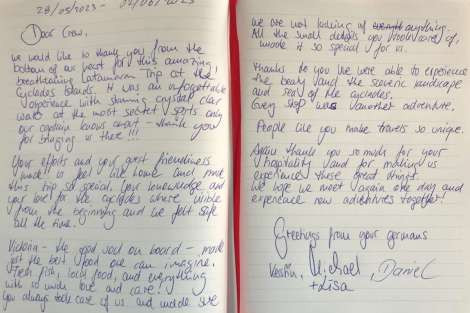 28/05/2023 - 04/06/2023
Dear Crew,
we would like to thank you from the
bottom of our heart for this amazing,
breathtaking Catamaran Trip at the
Cyclades Islands. It was an unforgettable
experience with stunning crystal clear
water at the most secret spots only
our captain knows about - thank you
for bringing us there!!!
Your efforts and your great friendliness
made us feel like home and made
this trip so special. Your knowledge and
your love for the cyclades where visible
from the beginning and we felt safe
all the time.
Victoria - the good soul on board - made
just the best food we can imagine.
Fresh fish, local food, and everything
with so much love and care!
You always take care of us and made sure
we are not lacking of anything.
All the small details you took care of,
made it so special for us.
Thanks to you we were able to experience
the beauty and the scenic landscape
and sea of the cyclades.
Every stop was another adventure.
People like you make travels so unique.
Again thank you so much for your
hospitality and for making us
experience these great things.
We hope we meet again one day and
experience new adventures together!
Greetings from your germans
Michael Daniel
+ Lisa